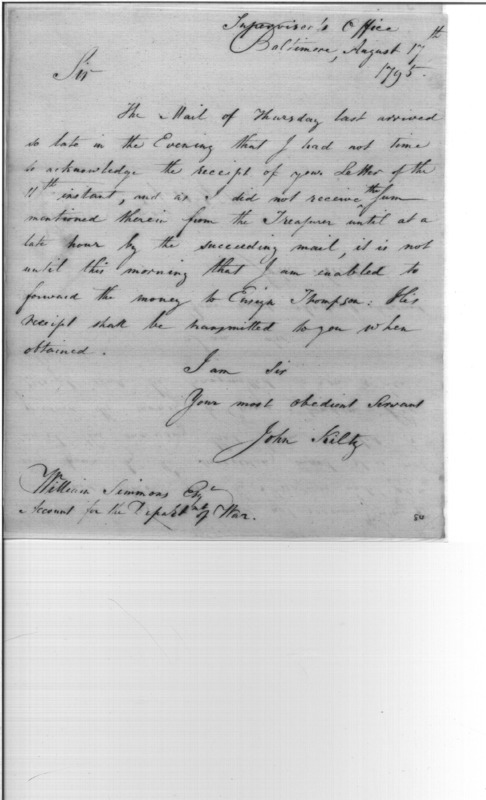 Supervisor's Office
Baltimore, August 17th
1795.
Sir
The Mail of Thursday last arrived
so late in the Evening that I had not time
to acknowledge the receipt of your Letter of the
11th instant, and as I did not receive the Sum
mentioned therein from the Treasurer until at a
late hour by the succeeding mail, it is not
until this morning that I am enabled to
forward the money to Ensign Thompson: His
receipt shall be transmitted to you when
obtained.
I am Sir
Your most obedient Servant
John Kilty
William Simmons Esqr
Account for the Depart.nt of War.